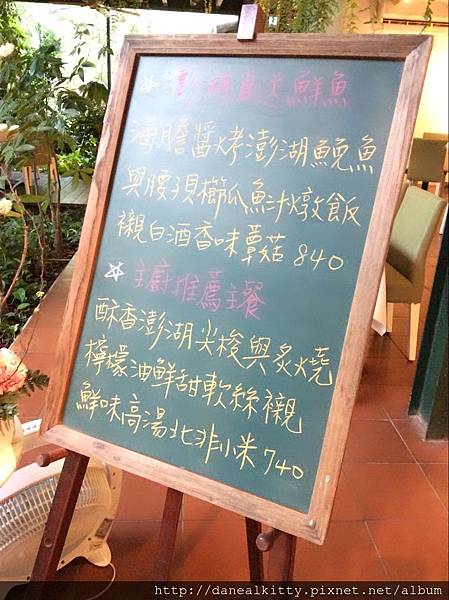 ☆澎湖直送鮮魚
海膽醬烤澎湖鮸魚
與腰子貝櫛瓜魚汁燉飯
襯白酒香味蕈菇 840
☆主廚推薦主餐
酥香澎湖尖梭與炙燒
檸檬油鮮甜軟絲襯
鮮味高湯北非小米740
http://danealkitty.pixnet.net/album